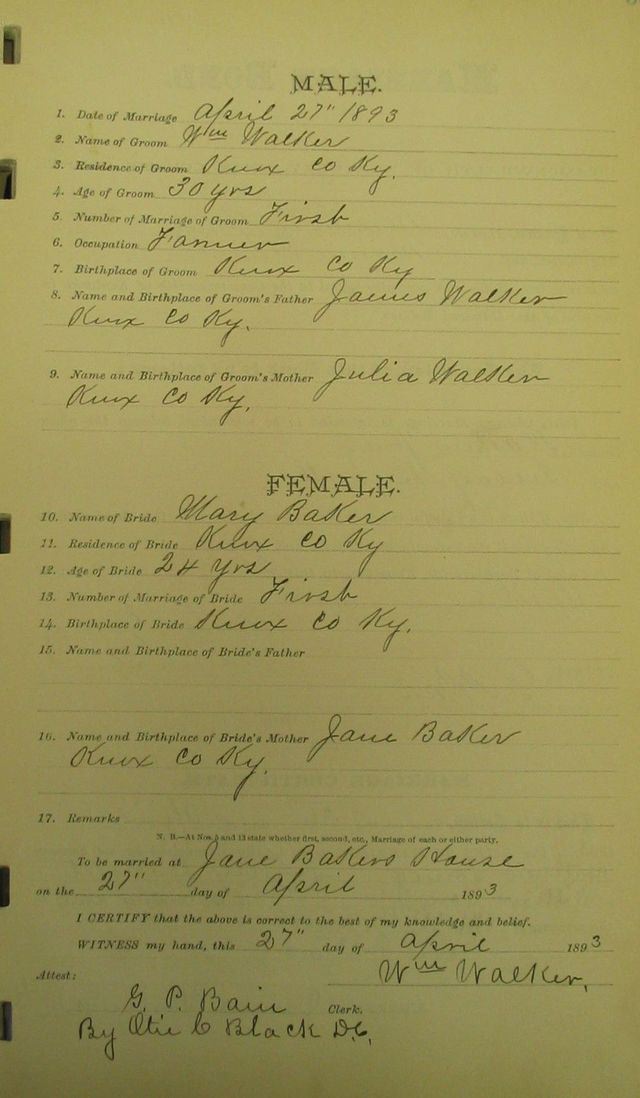 MALE.
1. Date of Marriage April 27" 1893
2. Name of Groom Wm Walker
3. Residence of Groom Knox Co Ky.
4. Age of Groom 30 yrs
5. Number of Marriage of Groom First
6. Occupation Farmer
7. Birthplace of Groom Knox Co Ky
8. Name and Birthplace of Groom's Father James Walker
Knox Co Ky.
9. Name and Birthplace of Groom's Mother Julia Walker
Knox Co Ky.
FEMALE.
10. Name of Bride Mary Baker
11. Residence of Bride Knox Co Ky
12. Age of Bride 24 yrs
13. Number of Marriage of Bride First
14. Birthplace of Bride Knox Co Ky.
15. Name and Birthplace of Bride's Father
16. Name and Birthplace of Bride's Mother Jane Baker
Knox Co Ky.
17. Remarks
N. B.—At Nos. 5 and 13 state whether first, second, etc., Marriage of each or either party.
To be married at Jane Bakers House
on the 27" day of April 1893
I CERTIFY that the above is correct to the best of my knowledge and belief.
WITNESS my hand, this 27" day of April 1893
Wm Walker.
Attest:
G. P. Bain Clerk.
By C Black D.C.